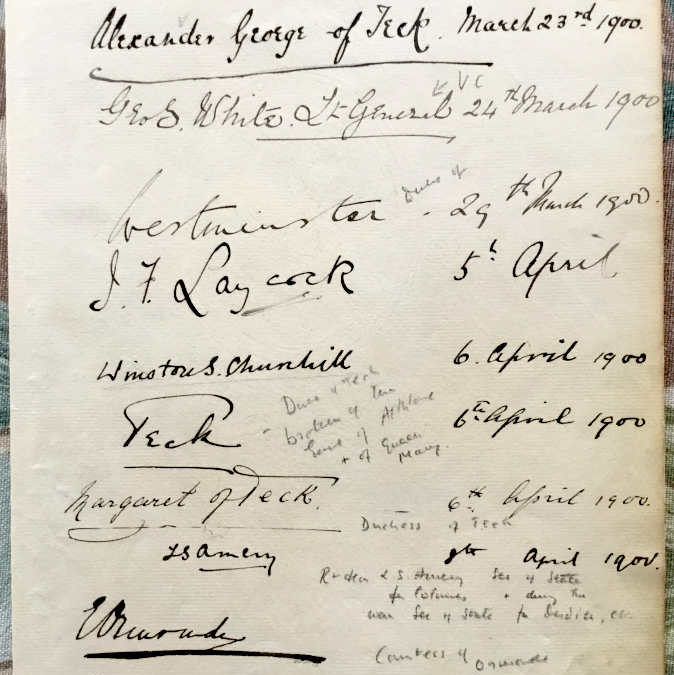 Alexander George of Teck. March 23rd 1900.
V C
Geo S. White. Lt General 24th March 1900
Duke of
Westminster - 29th March 1900.
J. F. Laycock 5th April
Winston S. Churchill 6. April 1900
Teck 6th April 1900
- Duke of Teck
brother of the
Earl of Athlone
+ of Queen
Mary.
Margaret of Teck. 6th April 1900.
Duchess of Teck
LS Amery 8th April 1900.
Rt Hon L S Amery Sec of State
for Colonies + during the
war Sec of State for India, etc.
EOrmonde
Countess of Ormonde